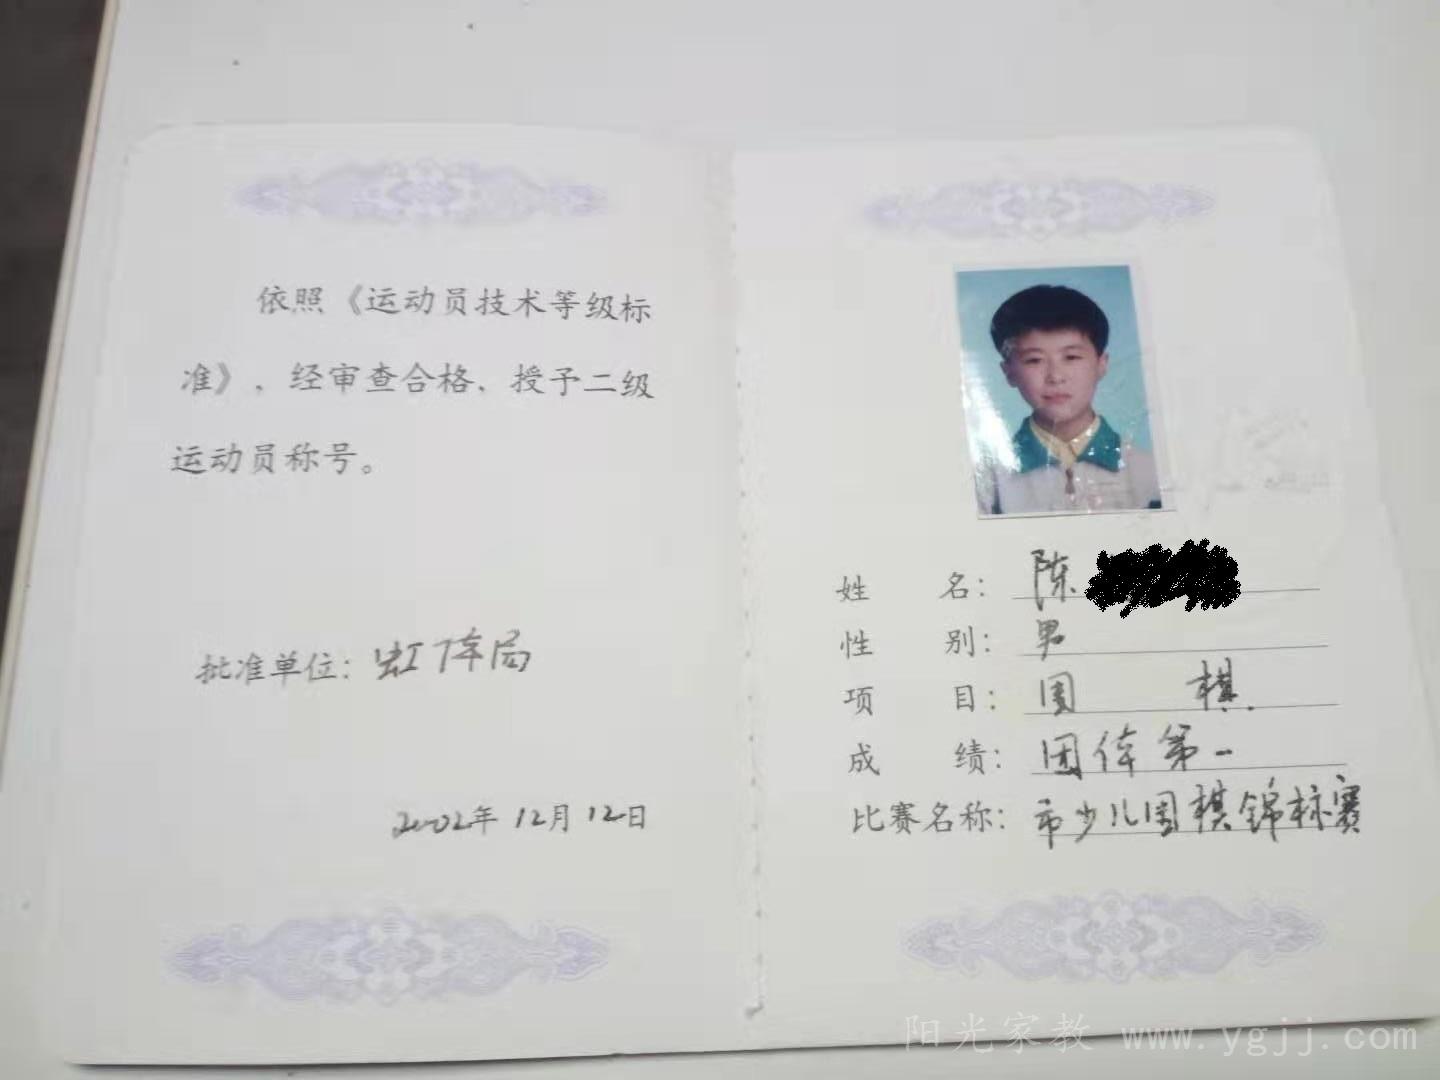 依照《运动员技术等级标
准》，经审查合格，授予二级
运动员称号。
批准单位：虹体局
2002年12月12日
姓名：陈
性别：男
项目：围棋
成绩：团体第一
比赛名称：市少儿围棋锦标赛
阳光家教 www.ygjj.com